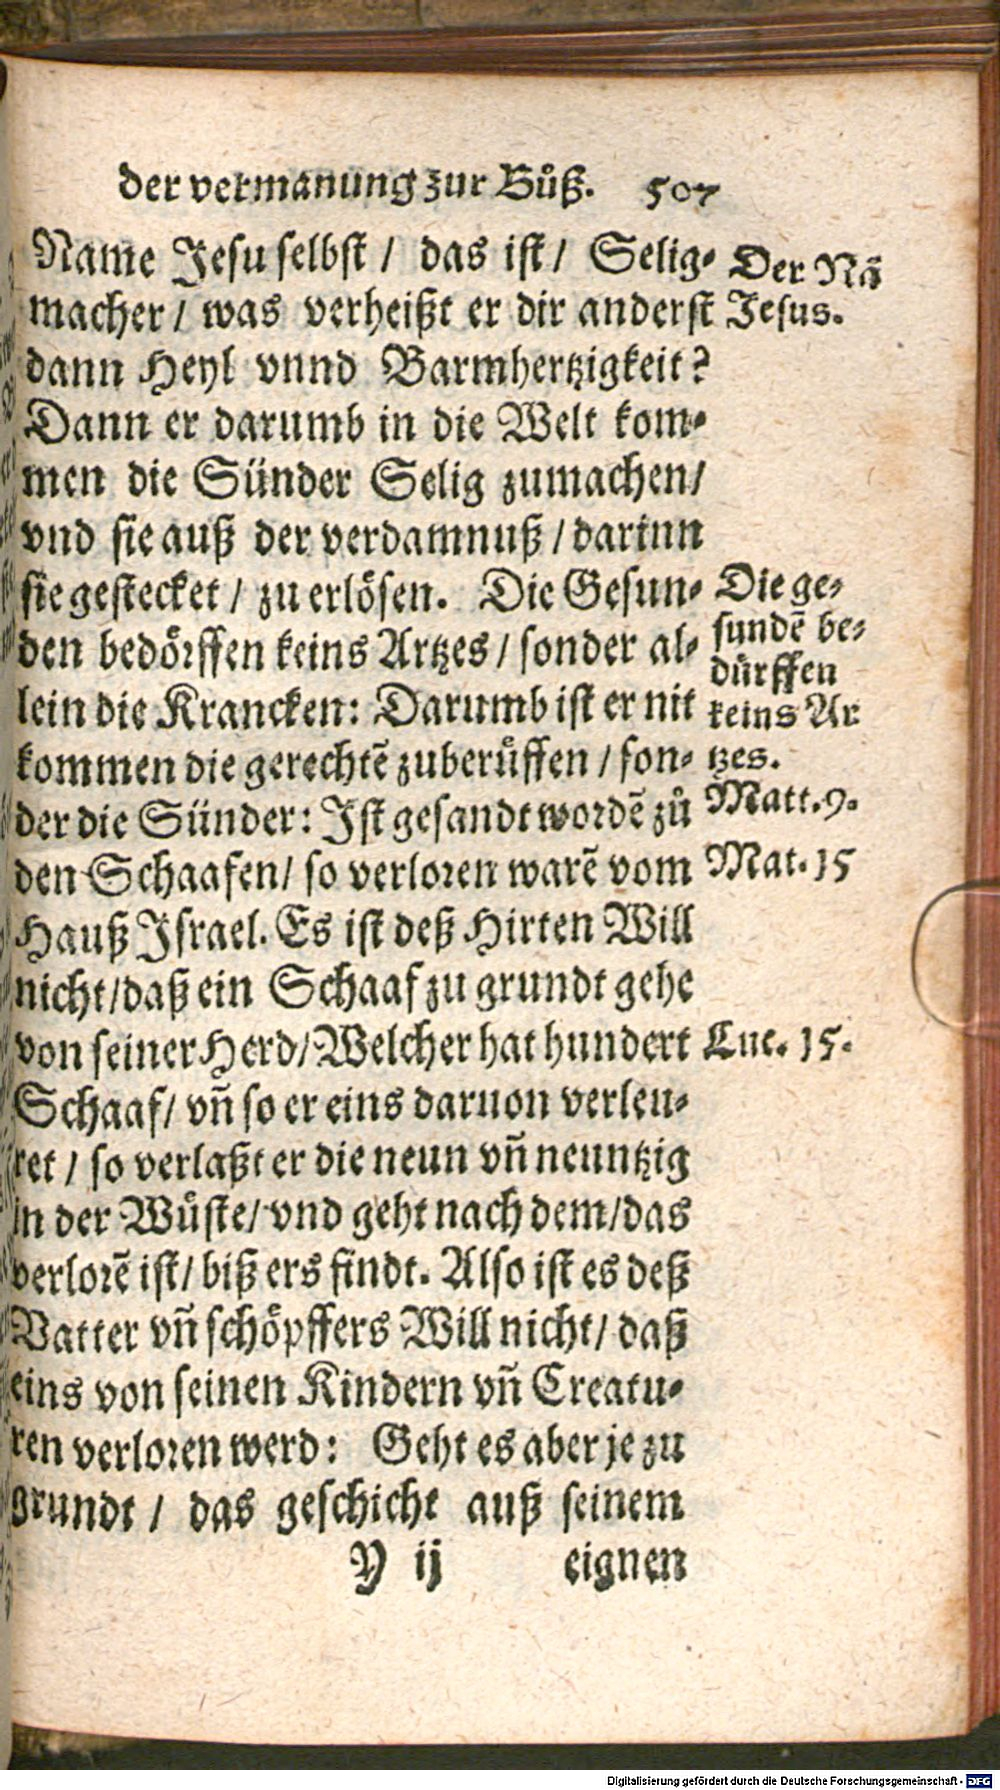 der vermanung zur Bůß. 507
Name Jesu selbst / das ist / Selig-
macher / was verheißt er dir anderst
dann Heyl vnnd Barmhertzigkeit?
Dann er darumb in die Welt kom-
men die Sünder Selig zumachen /
vnd sie auß der verdamnuß / darinn
sie gestecket / zu erlösen. Die Gesun-
den bedörffen keins Artzes / sonder al-
lein die Krancken: Darumb ist er nit
kommen die gerechtē zuberůffen / son-
der die Sünder: Ist gesandt wordē zů
den Schaafen / so verloren warē vom
Hauß Israel. Es ist deß Hirten Will
nicht / daß ein Schaaf zu grundt gehe
von seiner Herd / Welcher hat hundert
Schaaf / vn̄ so er eins daruon verleu-
ret / so verlaßt er die neun vn̄ neuntzig
in der Wůste / vnd geht nach dem / das
verlorē ist / biß ers findt. Also ist es deß
Vatter vn̄ schöpffers Will nicht / daß
eins von seinen Kindern vn̄ Creatu-
ren verloren werd: Geht es aber je zu
grundt / das geschicht auß seinem
Y ij eignen
Der Nā
Jesus.
Die ge-
sundē be-
dürffen
keins Ar
tzes.
Matt. 9.
Mat. 15
Luc. 15.
Digitalisierung gefördert durch die Deutsche Forschungsgemeinschaft - DFG